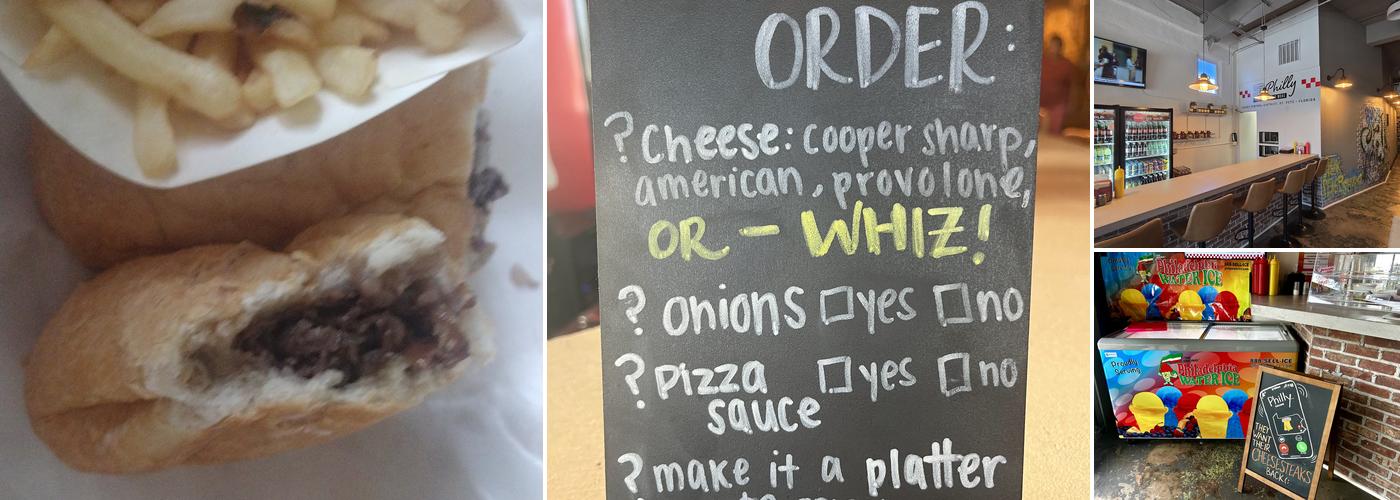 ORDER:
? Cheese: cooper sharp,
american, provolone,
OR - WHIZ!
? onions yes no
? pizza yes no
sauce
? make it a platter
Philly
Philadelphia
WATER ICE
888-SELL-ICE
Proudly
Serving
Philadelphia
WATER ICE
888-SELL-ICE
Philly
THEY
WANT
THEIR
CHEESESTEAKS
BACK!